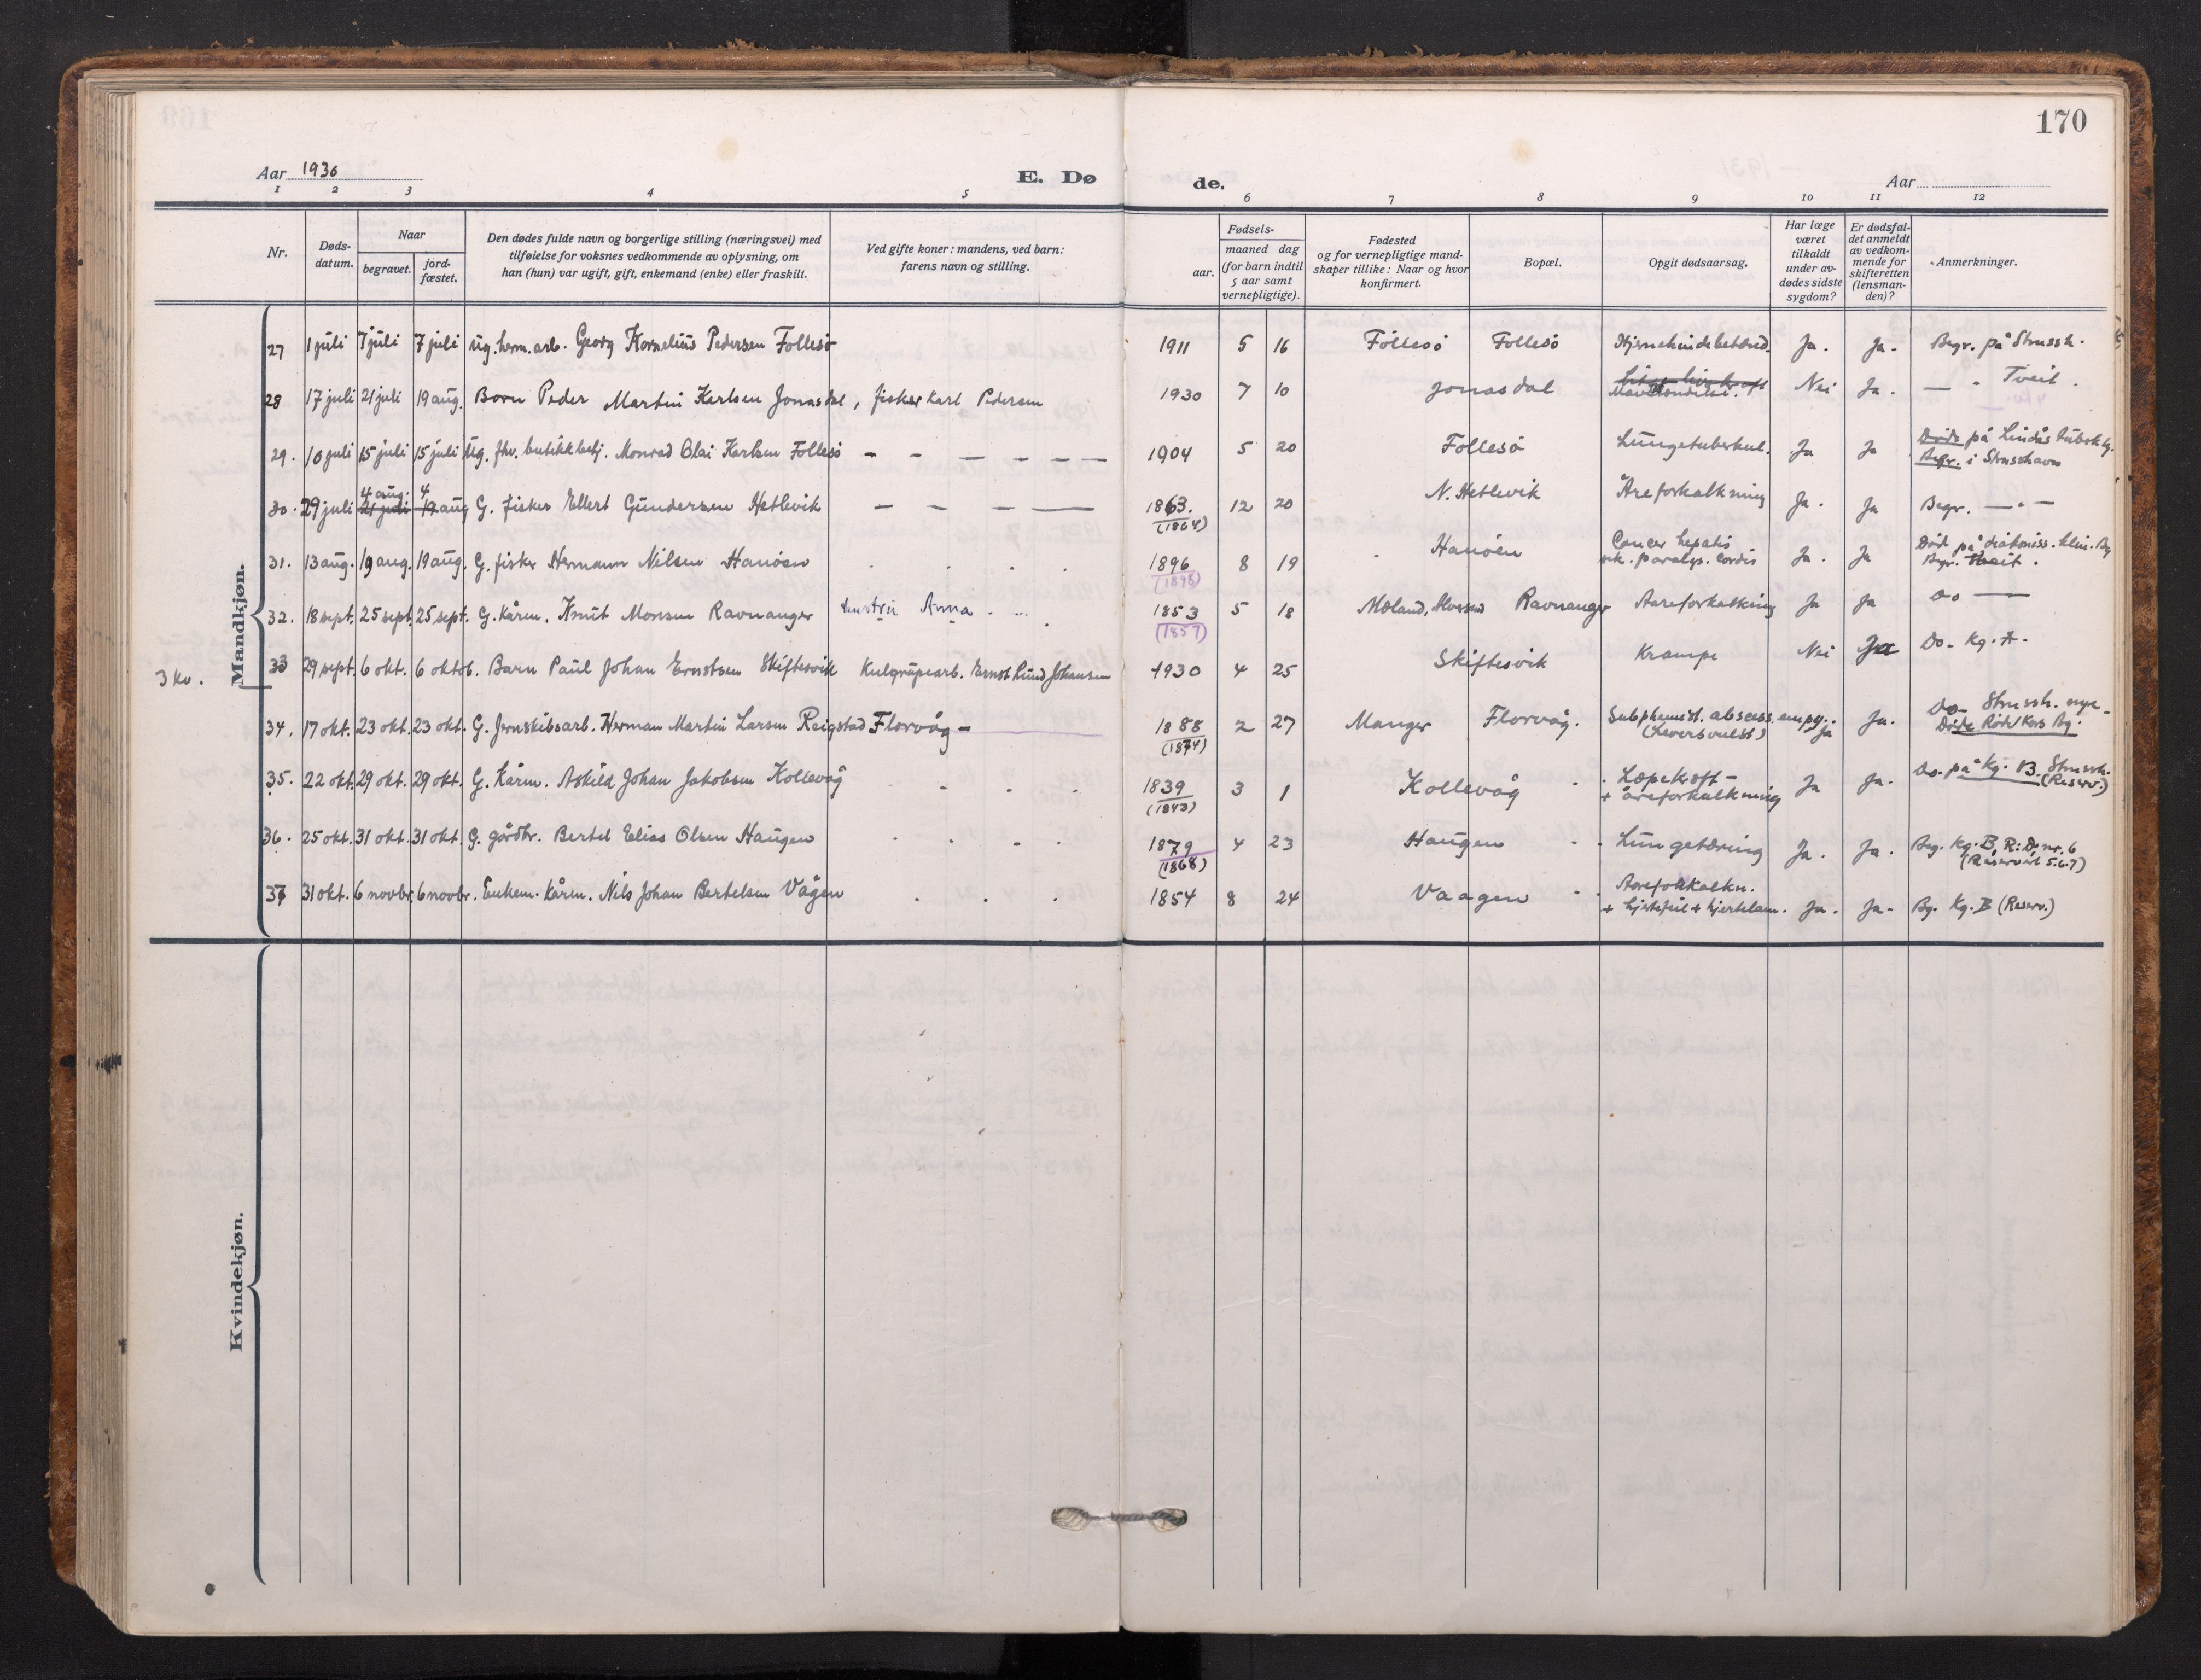 170
Aar 1930
E. Dø de.
Aar
1 2 3 4 5 6 7 8 9 10 11 12
Nr.
Døds-
datum.
Naar
begravet.
jord-
fæstet.
Den dødes fulde navn og borgerlige stilling (næringsvei) med
tilføielse for voksnes vedkommende av oplysning, om
han (hun) var ugift, gift, enkemand (enke) eller fraskilt.
Ved gifte koner: mandens, ved barn:
farens navn og stilling.
Fødsels-
aar.
maaned dag
(for barn indtil
5 aar samt
vernepligtige).
Fødested
og for vernepligtige mand-
skaper tillike: Naar og hvor
konfirmert.
Bopæl.
Opgit dødsaarsag.
Har læge
været
tilkaldt
under av-
dødes sidste
sygdom?
Er dødsfal-
det anmeldt
av vedkom-
mende for
skifteretten
(lensman-
den)?
Anmerkninger.
Mandkjøn.
27 1 juli 7 juli 7 juli ug. hem. arb. Georg Kornelius Pedersen Follesø 1911 5 16 Follesø Follesø Hjernehindebetænd. Ja. Ja. Begr. på Strussh.
28 17 juli 21 juli 19 aug. Barn Peder Martin Karlsen Jonasdal, fisker Karl Pedersen 1930 7 10 Jonasdal Nei Ja. — " Tveit.
29. 10 juli 15 juli 15 juli Ug. fhv. butikkbetj. Monrad Olai Karlsen Follesø — — — — — — 1904 5 20 Follesø Lungetuberkul. Ja Ja Døde på Lindås
Begr. i Strusshavn
4 aug. 4
30. 29 juli 21 juli 19 aug G. fisker Ellert Gundersen Hetlevik — — — — 1863. 12 20 N. Hetlevik Åreforkalkning Ja. Ja Begr. — " —
(1864)
31. 13 aug. 19 aug. 19 aug. G. fisker Hermann Nilsen Hanøen 1896 8 19 Hanöen Cancer hepatis Ja. Ja Död på diakoniss. klin. Bg
(1898) paralys. cordis Begr. Tveit.
32. 18 sept. 25 sept. 25 sept. G. kårm. Knut Monsen Ravnanger hustru Anna 1853 5 18 Mæland, Alversund Ravnanger Aareforkalkning Ja Ja Do —
(1857)
3 kv.
33 29 sept. 6 okt. 6 oktob. Barn Paul Johan Ernstsen Skiftesvik Kulgrupearb. Ernst Lund Johansen 1930 4 25 Skiftesvik Krampe Nei Ja Do. Kg. A.
34. 17 okt. 23 okt. 23 okt. G. Jernskibsarb. Herman Martin Larsen Reigstad Florvåg — 1888 2 27 Manger Florvåg. abscess. empy. Ja Ja. Do Strussh. nye
(1874) (Leversvulst) Døde Røde Kors Bg.
35. 22 okt. 29 okt. 29 okt. G. Kårm. Askild Johan Jakobsen Kollevåg 1839 3 1 Kollevåg Læpekræft — Ja Ja. Do. på Kg. B. Strussh.
(1843) + åreforkalkning (Reserv.)
36. 25 okt. 31 okt. 31 okt. G. gårdbr. Bertel Elias Olsen Haugen 1879 4 23 Haugen Lungetæring Ja. Ja. Beg. Kg. B, R: D. nr. 6
(1868) (Reservert 5.6.7)
37 31 okt. 6 novbr. 6 novbr. Enkem. kårm. Nils Johan Bertelsen Vågen 1854 8 24 Vaagen Aareforkalkn. Ja. Ja. Bg. Kg. B (Reserv.)
+ hjertefeil + hjertelam.
Kvindekjøn.